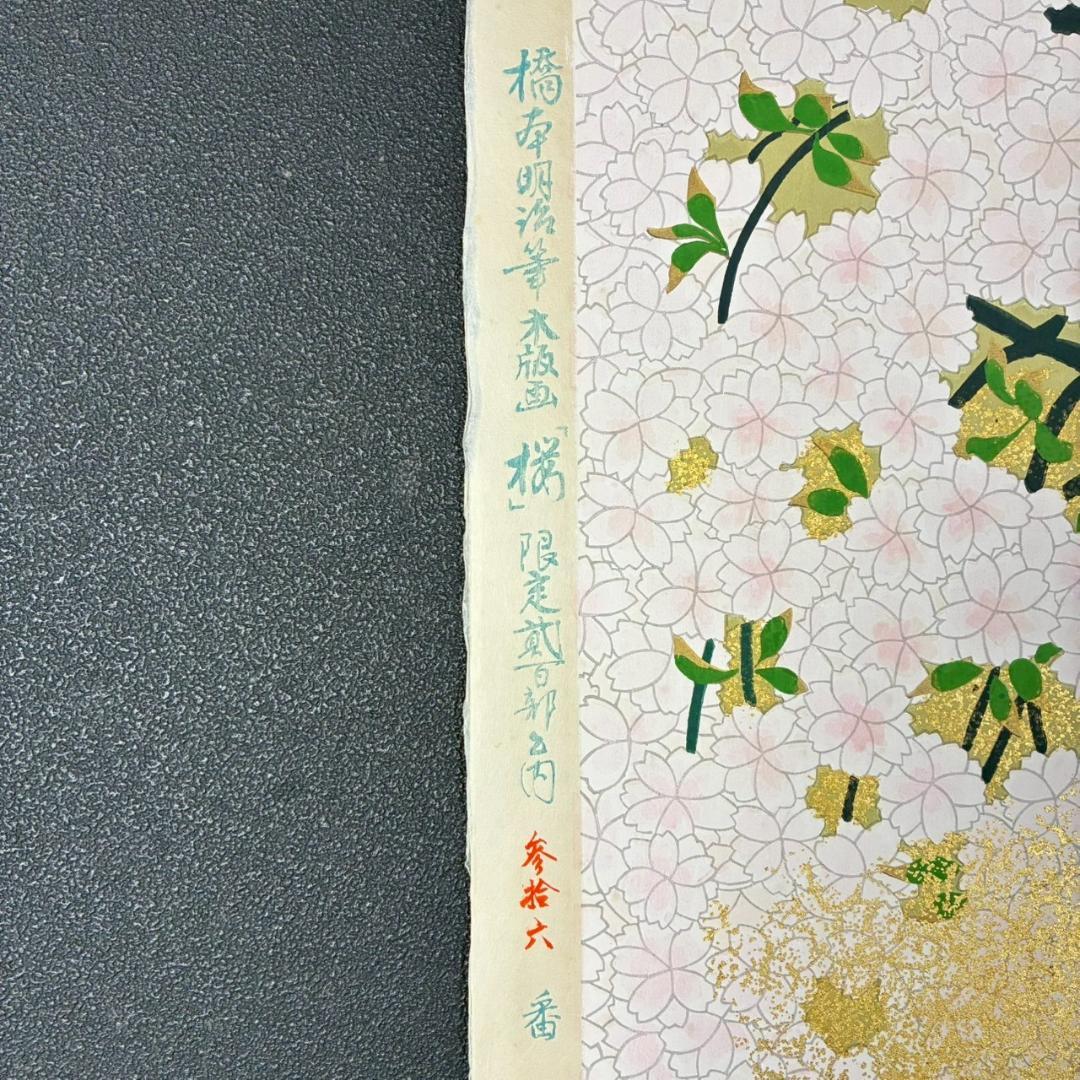 橋本明治筆 木版画「櫻」限定貳百部之内 参拾六 番